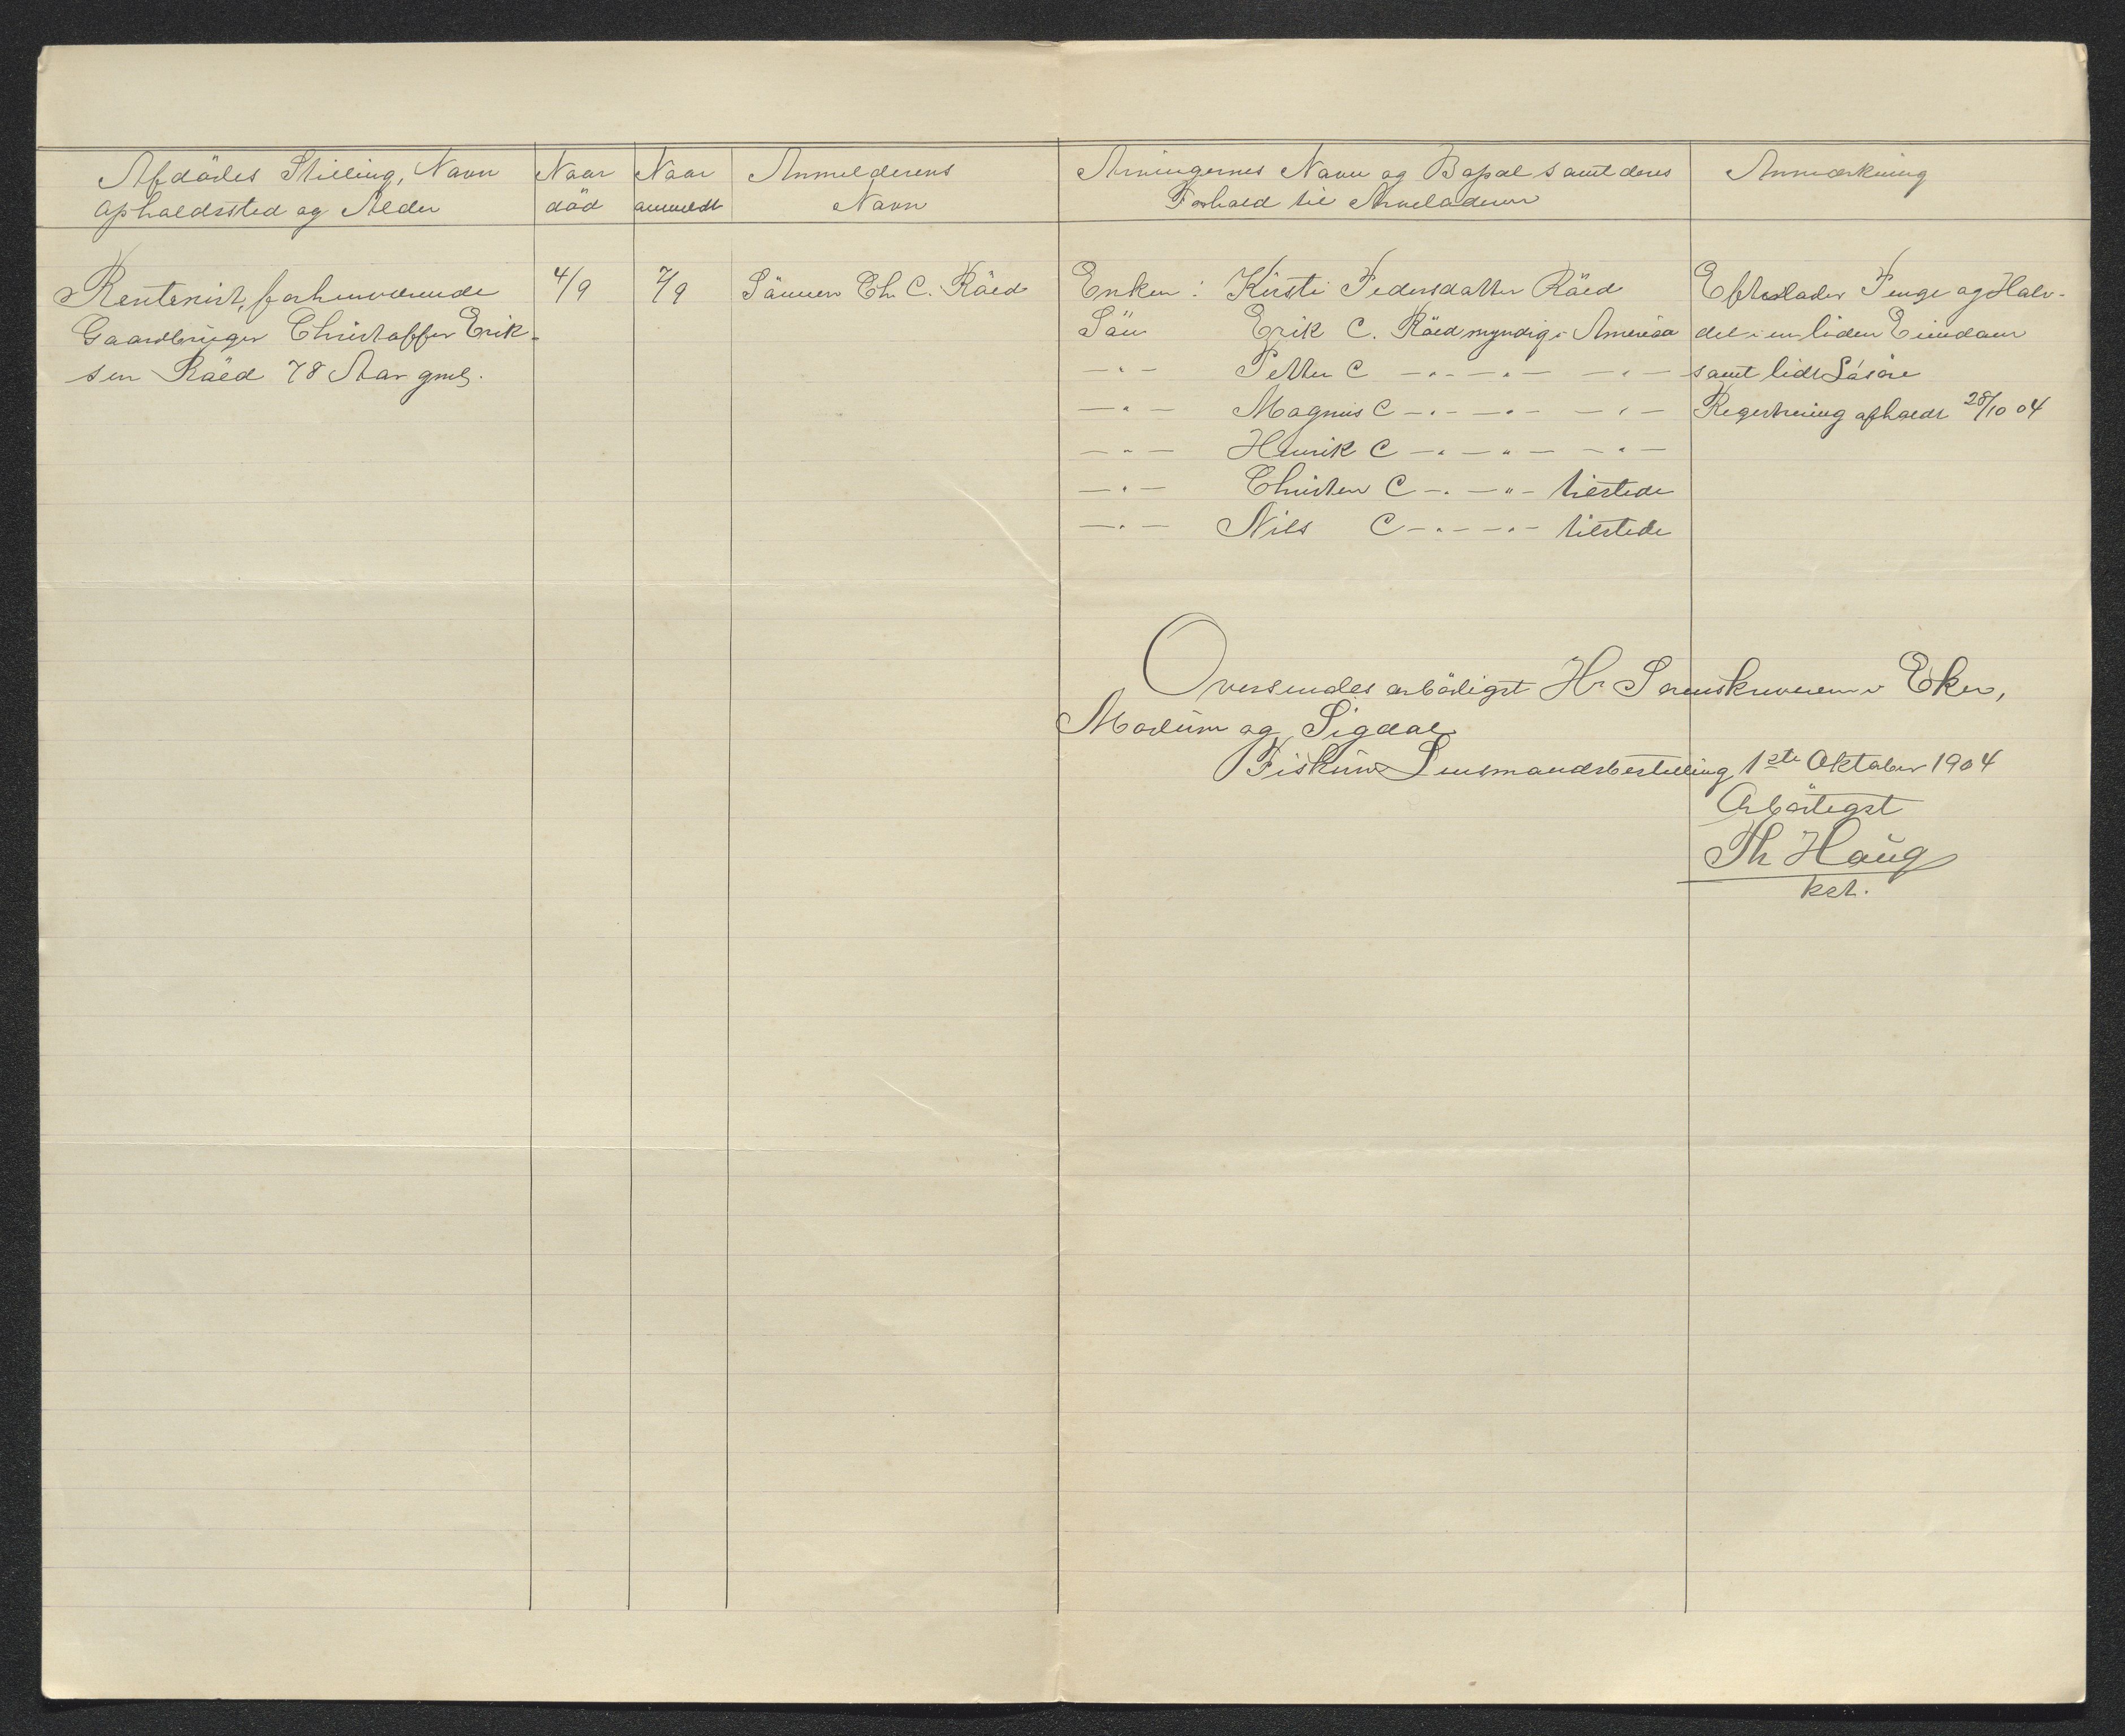 Afdödes Stilling, Navn
Opholdssted og Alder
Naar
död
Naar
anmeldt
Anmelderens
Navn
Arvingernes Navn og Bopæl samt deres
Forhold til Arveladeren
Anmærkning
Rentenist, forhenværende
Gaardbruger Christoffer Erik-
sen Röed 78 Aar gml.
4/9
7/9
Sönnen Ch. C. Röed
Enken: Kirsti Pedersdatter Röed
Sön Erik C. Röed myndig i Amerika
—"— Petter C —"— —"— —"—
—"— Magnus C —"— —"— —"—
—"— Henrik C —"— —"— —"—
—"— Christen C —"— —"— tilstede
—"— Nils C —"— —"— tilstede
Efterlader Penge og Halv-
del i en liden Eiendom
samt lidt Lösöre
Registrering afholdt 28/10 04
Oversendes ærbödigst Hr Sorenskriveren i Eker,
Modum og Sigdal
Fiskum Lensmandsbestilling 1ste Oktober 1904
Ærbödigst
Th Haug
kst.